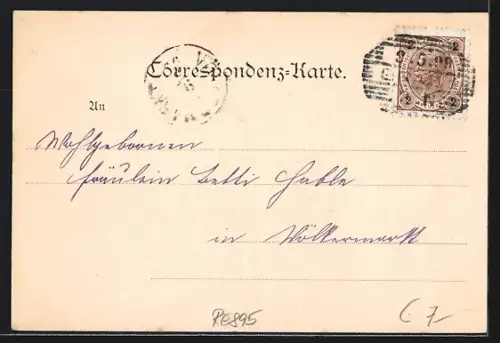 Correspondenz-Karte.
An
Wohlgebornen
Fräulein Betti Hable
in Völkermarkt
RE895
67
2 2